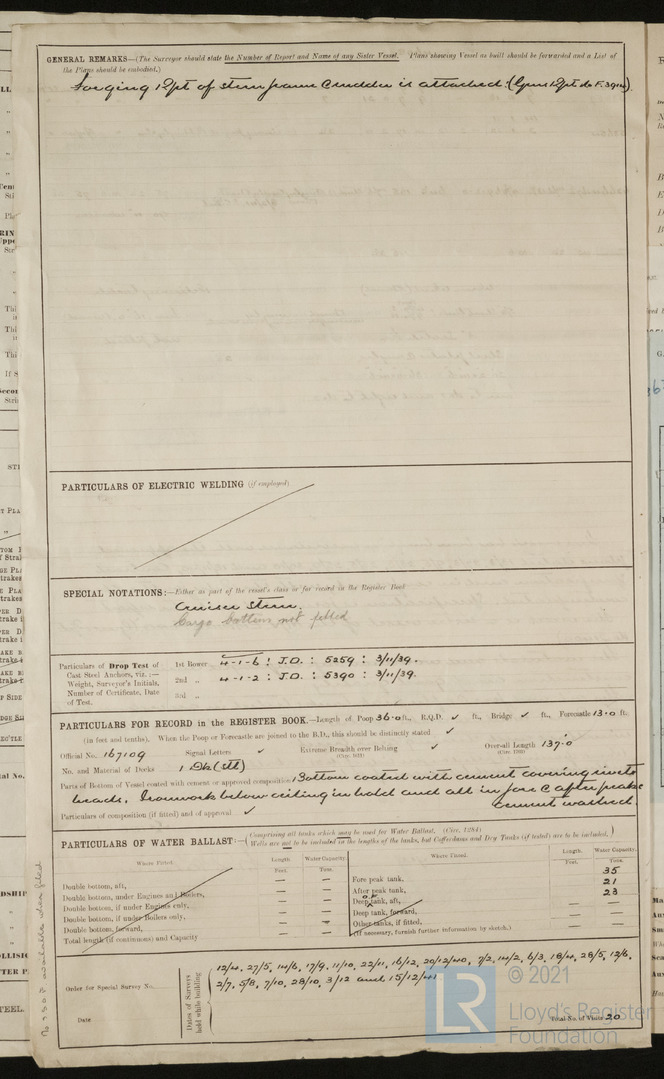 GENERAL REMARKS—(The Surveyor should state the Number of Report and Name of any Sister Vessel. Plans showing Vessel as built should be forwarded and a List of
the Plans should be embodied.)
Forging Rpt of stern frame & rudder is attached.
PARTICULARS OF ELECTRIC WELDING (if employed)
SPECIAL NOTATIONS:—Either as part of the vessel's class or for record in the Register Book
Cruiser Stern.
Cargo battens not fitted
Particulars of Drop Test of 1st Bower 4-1-6 : J.O. : 5259 : 3/11/39.
Cast Steel Anchors, viz.:—
Weight, Surveyor's Initials, 2nd „ 4-1-2 : J.O. : 5390 : 3/11/39.
Number of Certificate, Date
of Test. 3rd „
PARTICULARS FOR RECORD in the REGISTER BOOK.—Length of Poop 36.0 ft., R.Q.D. ✓ ft., Bridge ✓ ft., Forecastle 13.0 ft.
(in feet and tenths). When the Poop or Forecastle are joined to the B.D., this should be distinctly stated ✓
Official No. 167109 Signal Letters ✓ Extreme Breadth over Belting ✓ Over-all Length 137.0
No. and Material of Decks 1 Dk (Stl)
Parts of Bottom of Vessel coated with cement or approved composition Bottom coated with cement covering rivets
heads. Ironwork below ceiling in hold and all in fore & after peaks
cement washed.
Particulars of composition (if fitted) and of approval ✓
PARTICULARS OF WATER BALLAST:—(Comprising all tanks which may be used for Water Ballast. (Circ. 1284)
Wells are not to be included in the lengths of the tanks, but Cofferdams and Dry Tanks (if tested) are to be included.)
Where Fitted. Length. Water Capacity. Where Fitted. Length. Water Capacity.
Feet. Tons. Feet. Tons.
Double bottom, aft, — — Fore peak tank, 35
Double bottom, under Engines and Boilers, — — After peak tank, 21
Double bottom, if under Engines only, — — Deep tank, aft, — 23
Double bottom, if under Boilers only, — — Deep tank, forward, — —
Double bottom, forward, — — Other tanks, if fitted, — —
Total length (if continuous) and Capacity (If necessary, furnish further information by sketch.)
Order for Special Survey No.
Date
Dates of Surveys
held while building
12/4, 27/5, 14/6, 17/9, 11/10, 22/11, 16/12, 20/12/40, 7/2, 14/2, 6/3, 18/4, 28/5, 12/6,
2/7, 5/8, 7/10, 28/10, 3/12 and 15/12/41
Total No. of Visits 20
© 2021
Lloyd's Register
Foundation
LR